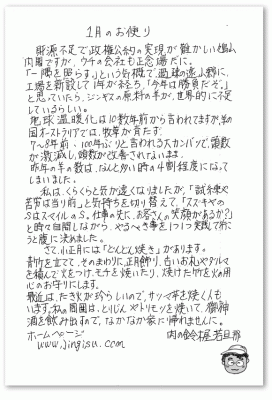 1月のお便り
財源不足で政権公約の実現が難かしい鳩山
内閣ですが、ウチの会社も正念場だに。
「一隅を照らす」という気概で過疎の遠山郷に、
工場を新設して1年が経ち、「今年は勝負だぞ」
と思っていたら、ジンギスの原料の羊が、世界的に不足
しているらしい。
地球温暖化は10数年前から言われてますが、羊の
国オーストラリアでは、牧草が育たず、
7〜8年前、100年ぶりと言われる大カンバツで、頭数
が激減し、頭数が改善されてないまま、
昨年の羊の数は、なんと多い時の4割程度になって
しまいました。
私は、くらくらと気が遠くなりましたが、「試練や
苦労は当り前」と気持ちを切り替えて、「スズキヤの
SはスマイルのS。仕事の先に、お客さんの笑顔があるか?」
と時々自問しながら、やるべき事を1つ1つ実践して行こ
うと腹に決めました。
さて、小正月には「どんどん焼き」があります。
青竹を立て、そのまわりに、正月飾り、古いお札やダルマ
を積んで火をつけ、モチを焼いたり、焼けた竹を火の用
心のお守りにします。
最近は、たき火が珍らしいので、サツマ芋を焼く人も
います。私の周囲は、とりじんやトンモツを焼いて、御神
酒を飲み出すので、なかなか家に帰れませんに。
ホームページ
www.jingisu.com
肉の鈴木屋 若旦那